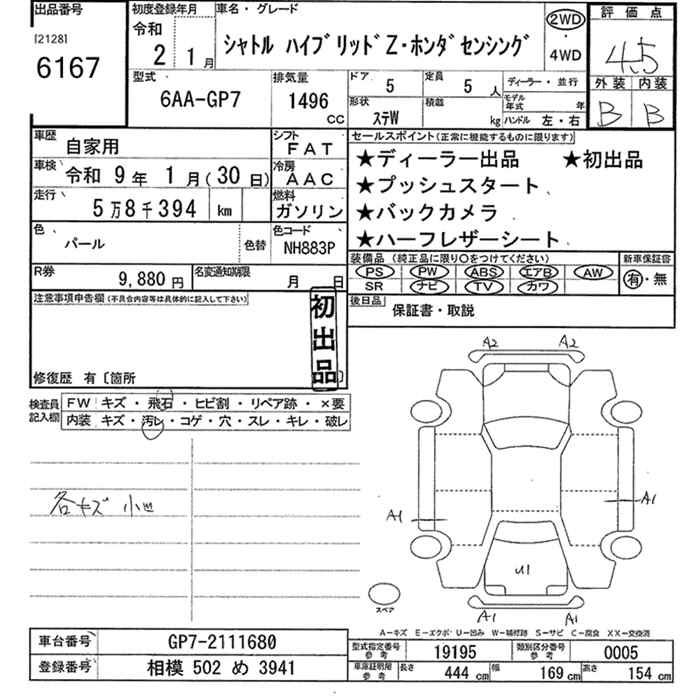 出品番号 初度登録年月 車名・グレード 2WD 評価点
[2128] 令和
6167 2 1月 シャトル ハイブリッドZ・ホンダセンシング 4WD 4.5
型式 排気量 ドア 5 定員 5人 ディーラー・並行 外装 内装
6AA-GP7 1496 CC 形状 ステW 積載 kg モデル年式 年 B B
ハンドル 左・右
車歴 自家用 シフト FAT セールスポイント(正常に機能するものに限ります)
車検 令和 9年 1月(30日) 冷房 AAC ★ディーラー出品 ★初出品
走行 5万8千394 km 燃料 ガソリン ★プッシュスタート
★バックカメラ
色 パール 色替 色コード NH883P ★ハーフレザーシート
R券 9,880円 名変通知期限 月 日 装備品(純正品に限り〇をつけてください) 新車保証書
PS PW ABS エアB AW 有・無
SR ナビ TV カワ
注意事項申告欄(不具合内容等は具体的に記入して下さい) 後日品 保証書・取説
初出品
修復歴 有〔箇所
検査員記入欄 FW キズ・飛石・ヒビ割・リペア跡・×要
内装 キズ・汚レ・コゲ・穴・スレ・キレ・破レ
A2 A2
各キズ 小凹
A1 A1
U1
スペア
A1 A1
A-キズ E-エクボ U-凹み W-補修跡 S-サビ C-腐食 XX-交換済
車台番号 GP7-2111680 型式指定番号 参考 19195 類別区分番号 参考 0005
登録番号 相模 502 め 3941 車庫証明用 参考 長さ 444 cm 幅 169 cm 高さ 154 cm